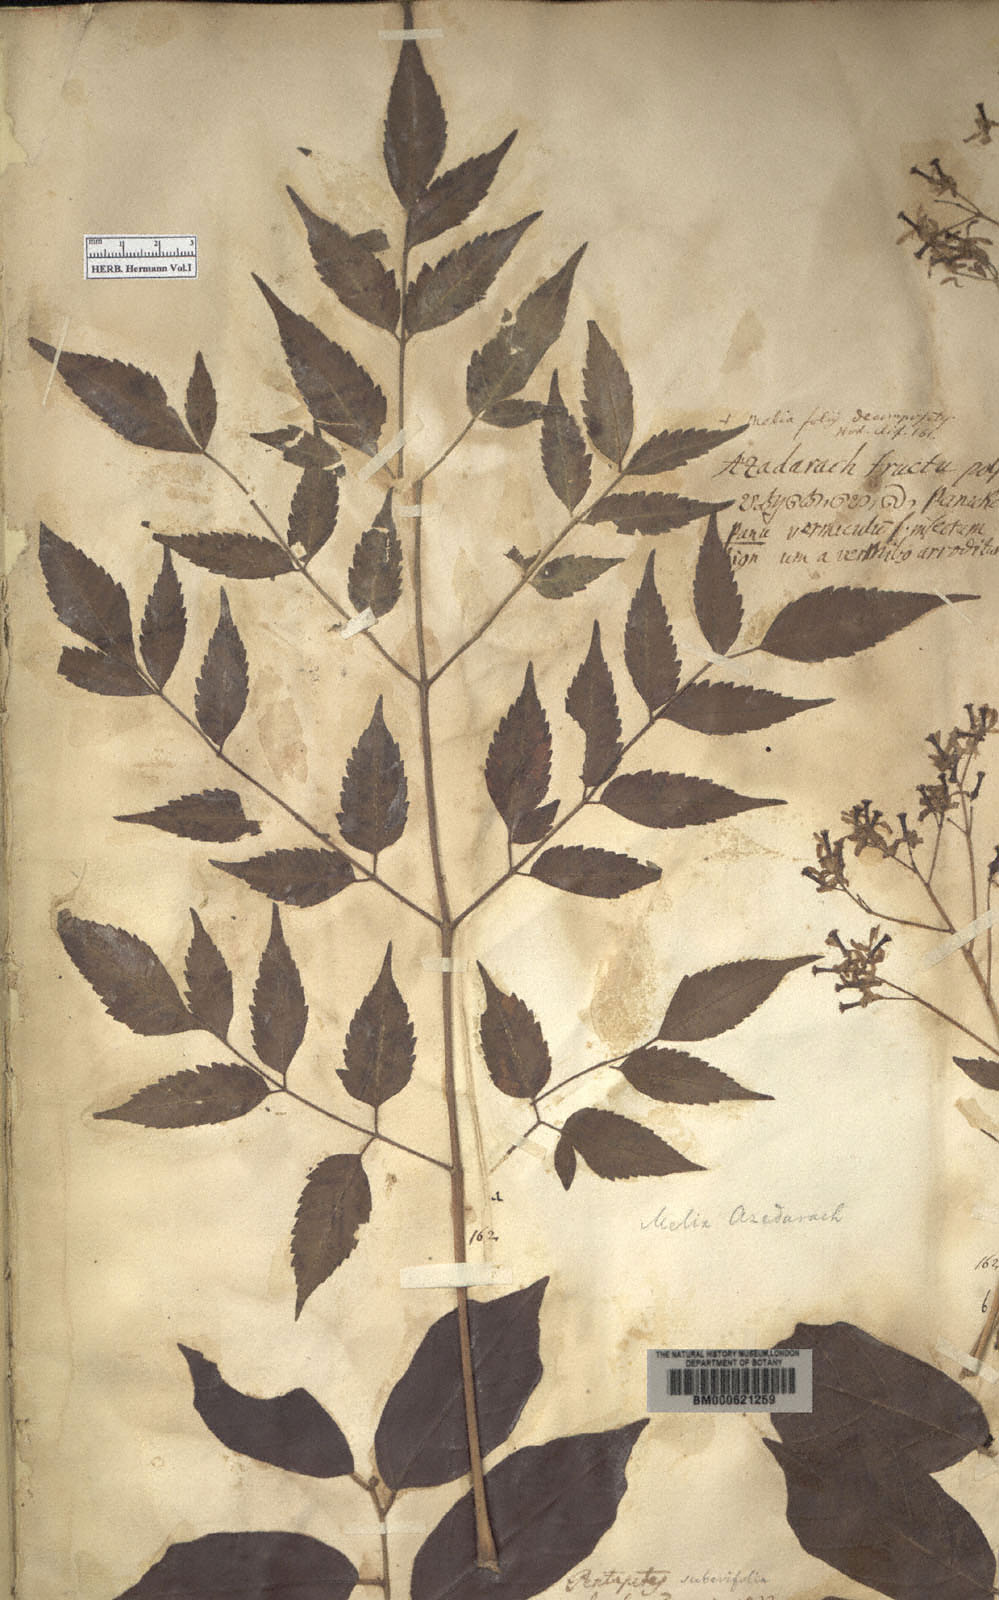 mm 1 2 3
HERB. Hermann Vol.I
Melia folijs decompositis.
Hort. clif. 161.
Azadarach fructu pol
Panake
Panu vermiculũ f. insectum
um a vermibo arroditur
Melia Azedarach
162
162
6
THE NATURAL HISTORY MUSEUM, LONDON
DEPARTMENT OF BOTANY
BM000621259
Pentapetes suberifolia